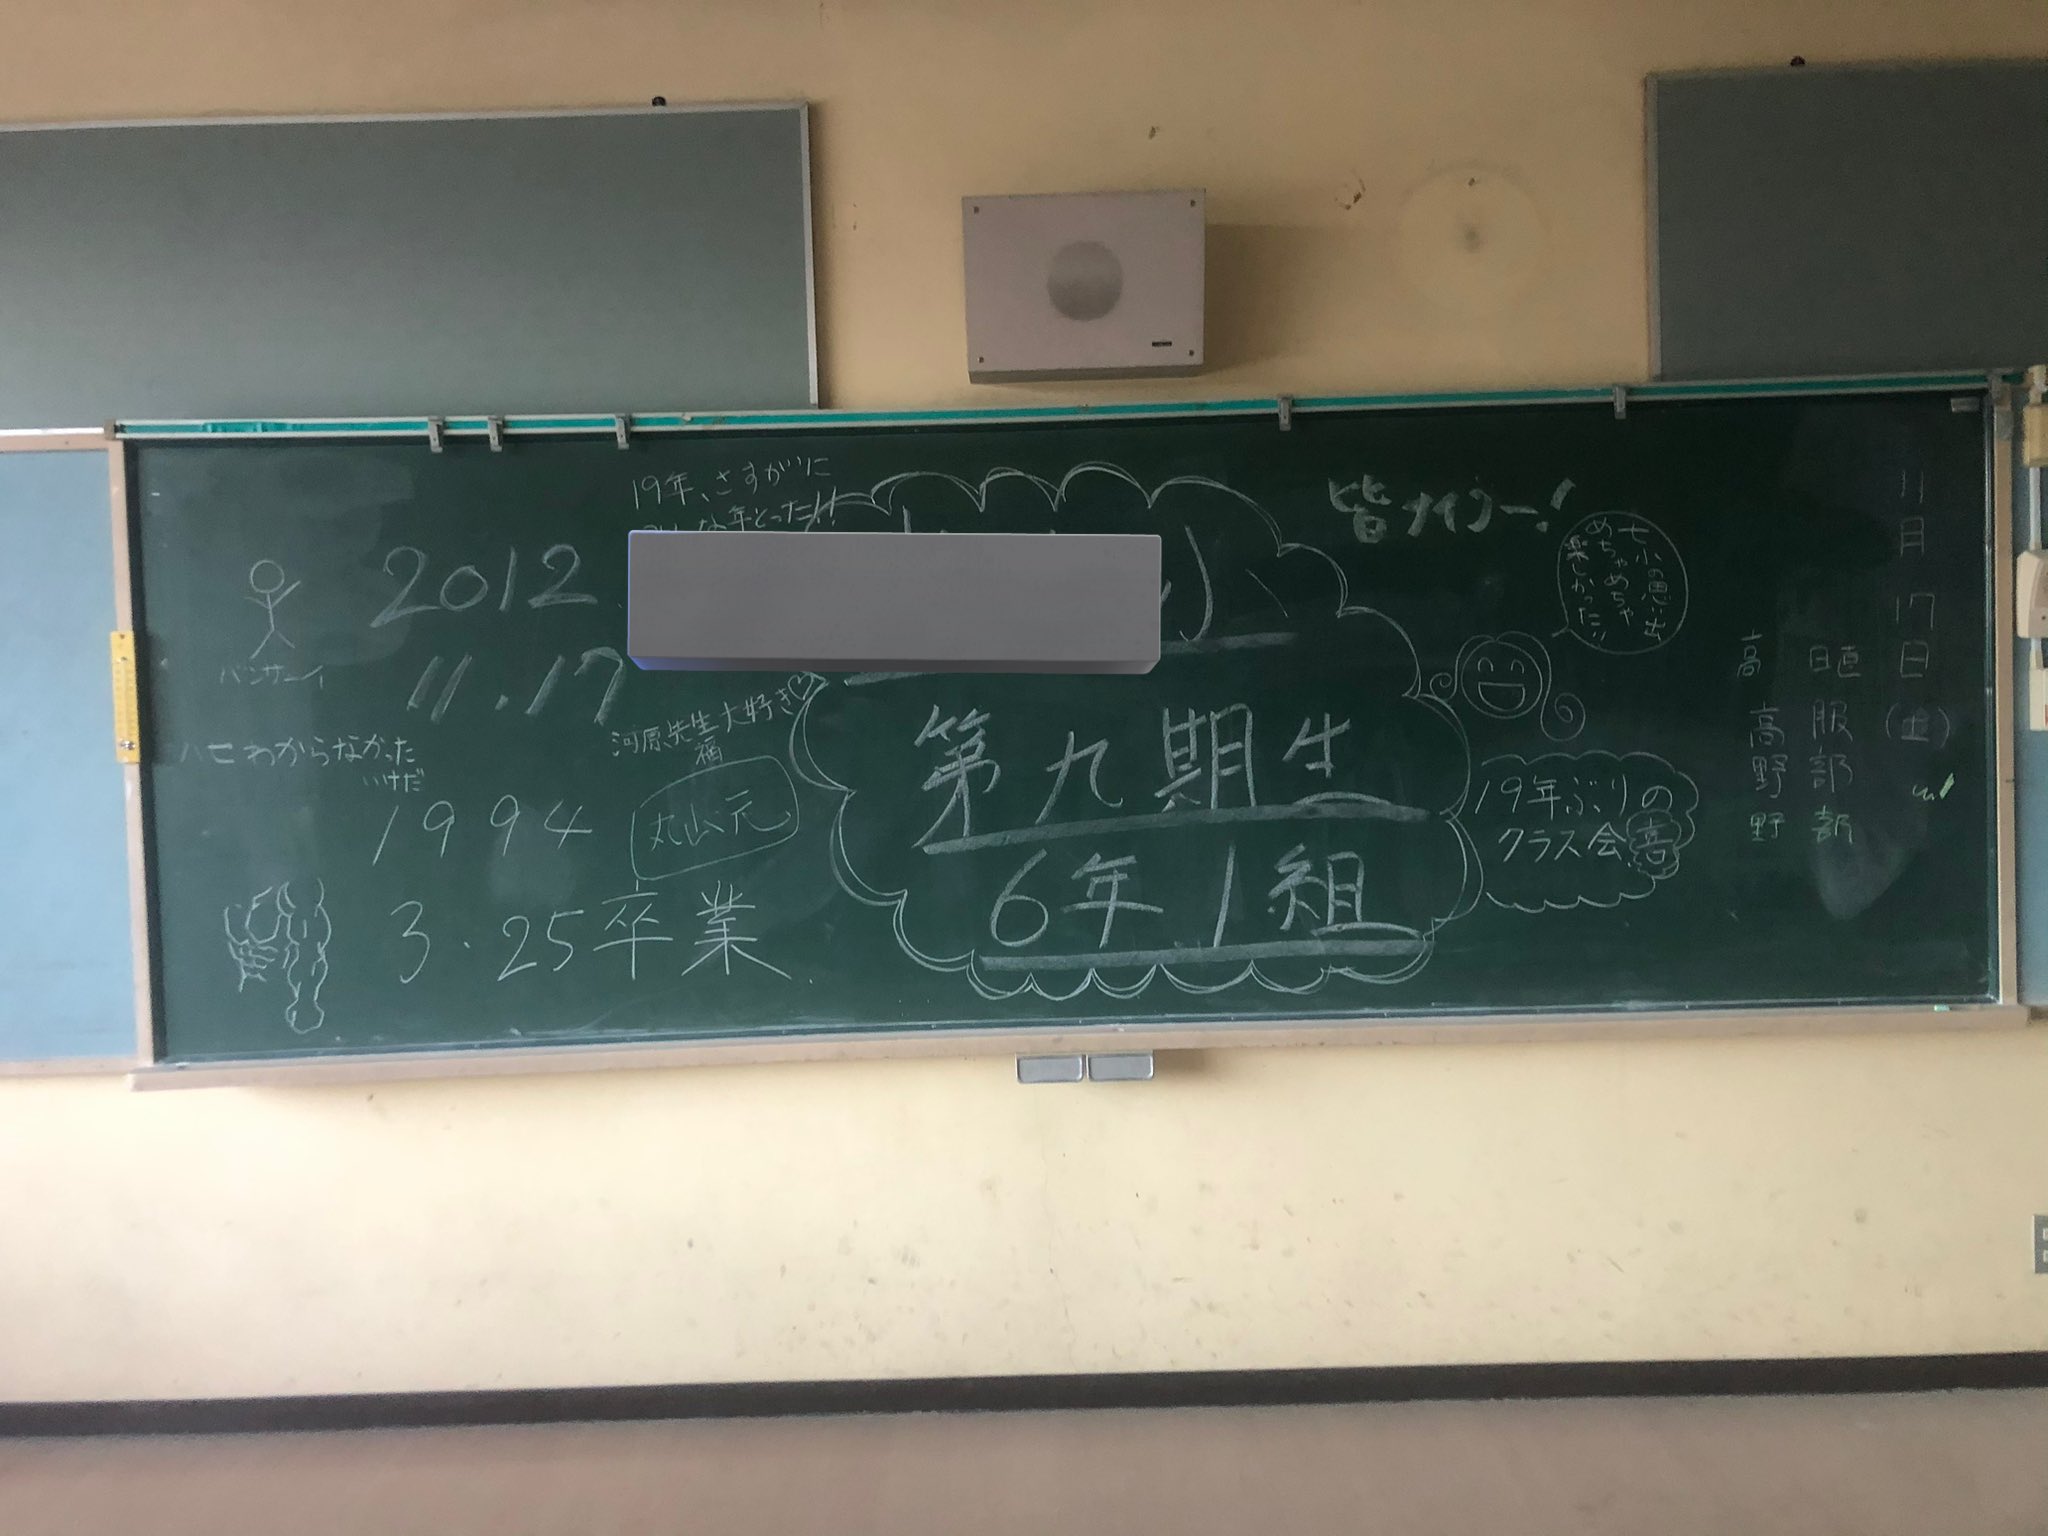 19年、さすがに
な年とった!!
2012.
11.17
バンザーイ
ハセわからなかった
いけだ
1994
3.25卒業
河原先生大好き♡
福
丸山元
小
第九期生
6年1組
皆ナイスー!
七小の思い出
めちゃめちゃ
楽しかった!!
19年ぶりの
クラス会
喜
11月17日(土)
日直
服部
高
高野
野